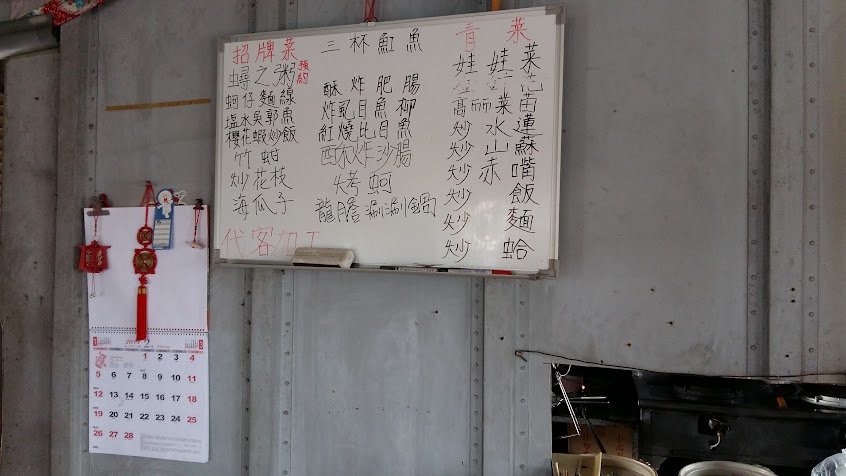 招牌菜
蟳之粥 預約
蚵仔麵線
塩水吳郭魚
櫻花蝦炒飯
竹蚶
炒花枝
海瓜子
代客加工
三杯魟魚
酥炸肥腸
炸虱目魚柳
紅燒比目魚
酥炸沙腸
烤蚵
龍膽涮涮鍋
青菜
娃娃菜
高麗菜苗
炒水蓮
炒山蘇
炒赤嘴
炒飯
炒麵
炒蛤
2
1 2 3 4
5 6 7 8 9 10 11
12 13 14 15 16 17 18
19 20 21 22 23 24 25
26 27 28